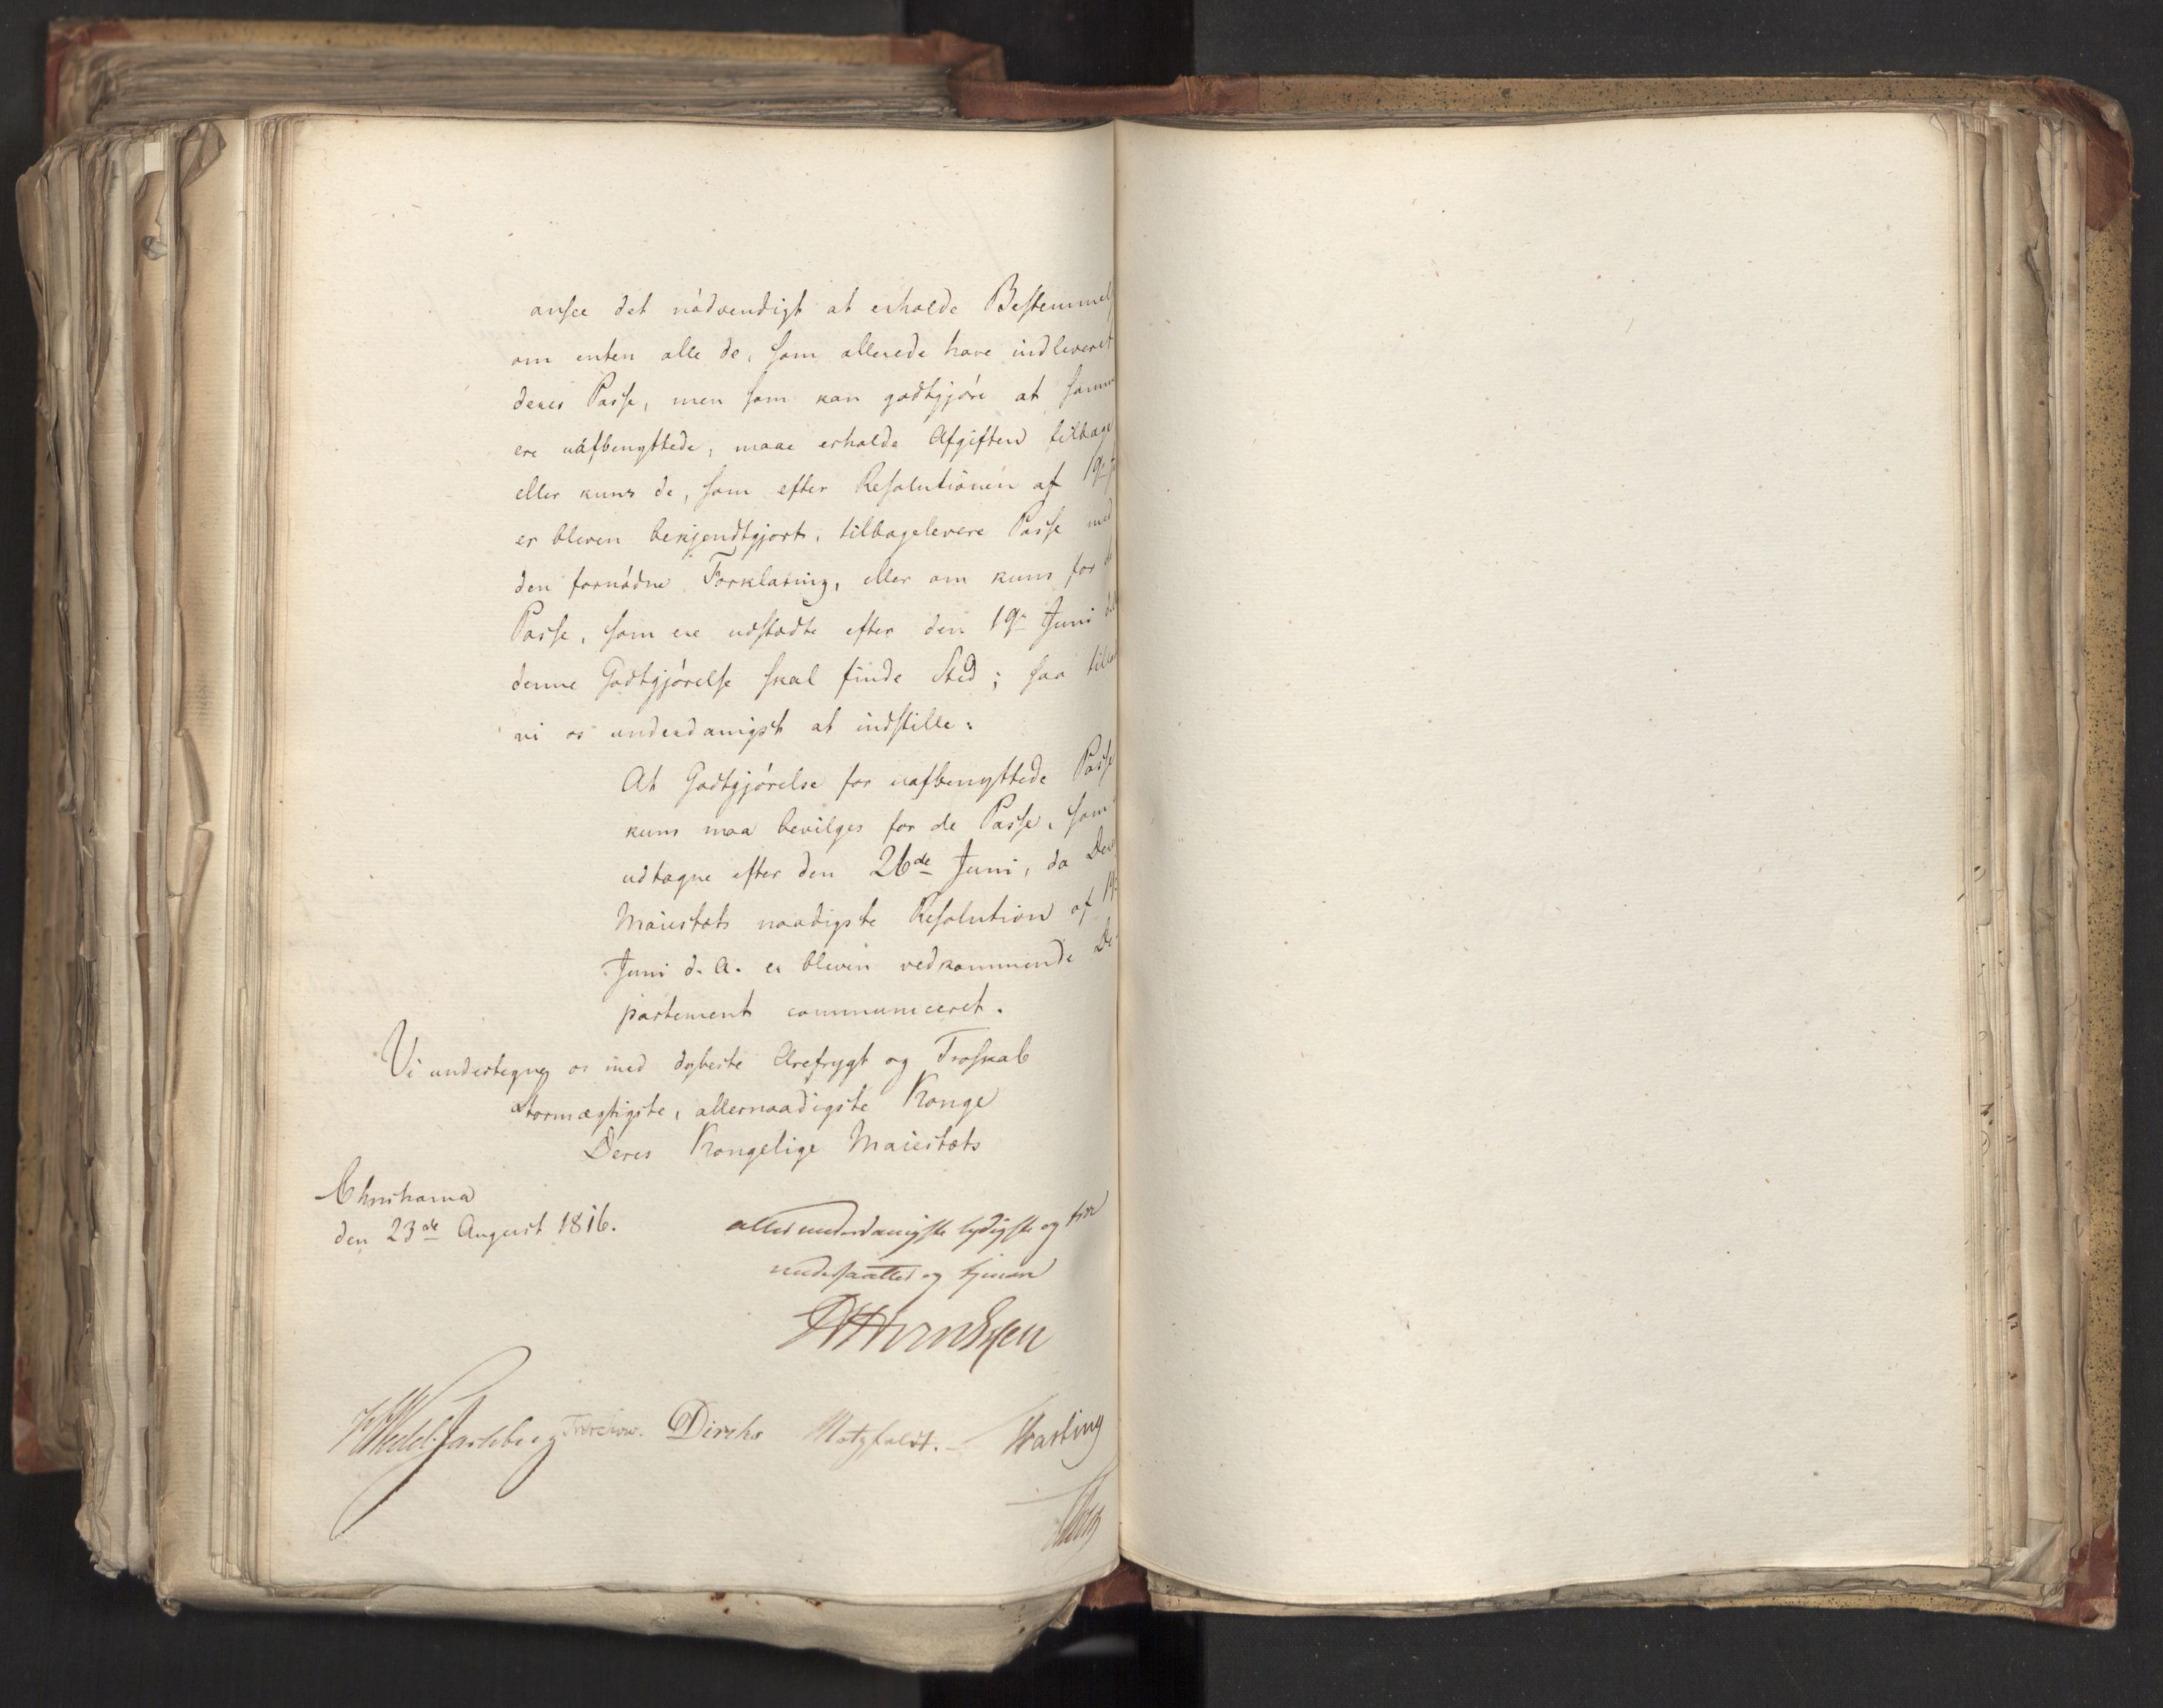 ansee det nödvendigt at erholde Bestemmels
om enten alle de, som allerede have indleveret
deres Passe, men som kan godtgjöre at samme
ere uafbenyttede, maae erholde Afgiften tilbage
eller kuns de, som efter Resolutionen af 19de
er bleven bekjendtgjort, tilbagelevere Passe med
den fornödne Forklaring, eller om kuns for de
Passe, som ere udstædte efter den 19de Juni
denne Godtgjörelse skal finde Sted; saa
vi os underdanigst at indstille:
At Godtgjörelse for uafbenyttede Passe
kuns maa bevilges for de Passe, som
udtagne efter den 26de Juni, da Der
Maiestæts naadigste Resolution af
Juni d. A. er bleven vedkommende De-
partement communiceret.
Vi undertegne os med dybeste Ærefrygt og Troskab
Stormægtigste, allernaadigste Konge
Deres Kongelige Maiestæts
Christiania
den 23de August 1816.
allerunderdanigste lydigste og troe
undersaatter og tjenere
Wedel Jarlsberg Treschow. Diriks Motzfeldt. Hasting